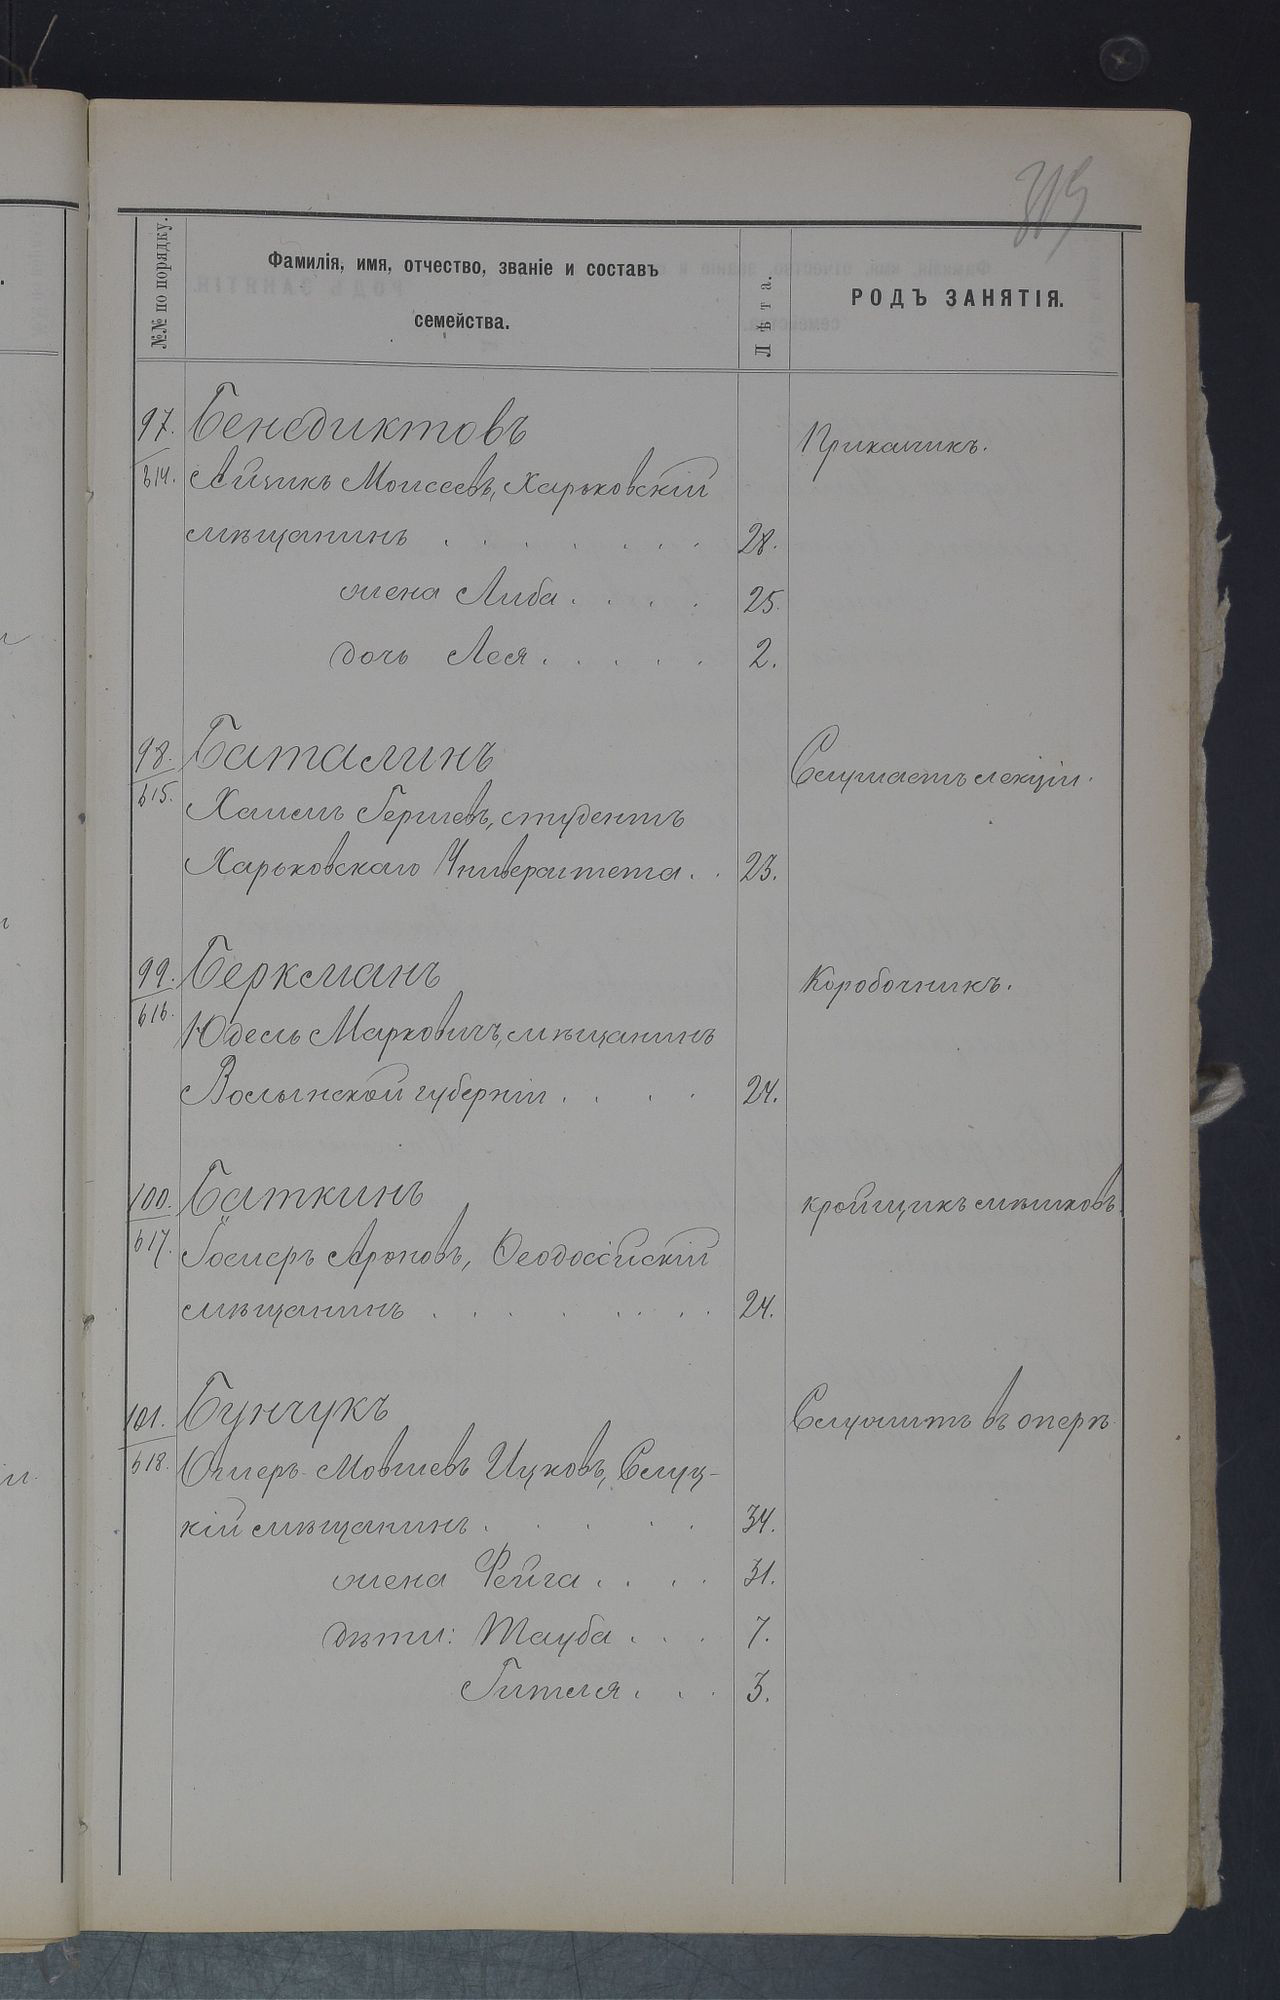 319
№№ по порядку.
Фамилія, имя, отчество, званіе и составъ
семейства.
Лѣта.
РОДЪ ЗАНЯТІЯ.
97. Бенедиктовъ
Приказчикъ.
614. Айзикъ Моисеевъ, Харьковскій
мѣщанинъ . . . . . . . . 28.
жена Либа . . . . 25.
дочь Лея . . . . . 2.
98. Баталинъ
Слушаетъ лекціи.
615. Хаимъ Гершевъ, студентъ
Харьковскаго Университета . . 23.
99. Беркманъ
Коробочникъ.
616. Юдель Марковичъ, мѣщанинъ
Волынской губерніи . . . . 24.
100. Баткинъ
кройщикъ мѣшковъ.
617. Іосмеръ Ароновъ, Ѳеодосійскій
мѣщанинъ . . . . . . . . 24.
101. Бунчукъ
Служитъ въ оперѣ.
618. Ошеръ-Мовшевъ Ицковъ, Слуц-
кій мѣщанинъ . . . . . 34.
жена Фейга . . . . 31.
дѣти: Тауба . . . 7.
Гителя . . . 3.